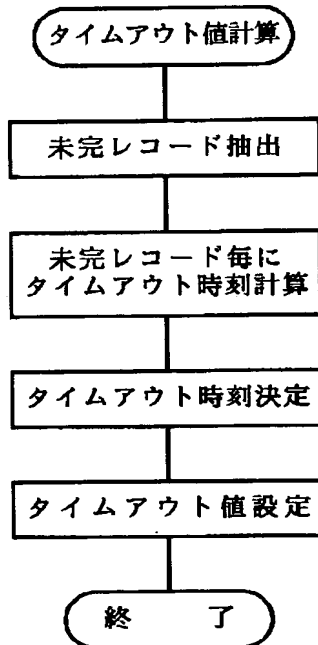 タイムアウト値計算
未完レコード抽出
未完レコード毎に
タイムアウト時刻計算
タイムアウト時刻決定
タイムアウト値設定
終 了